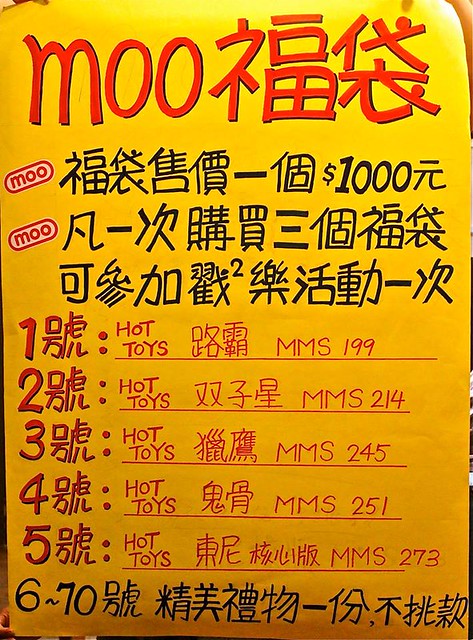 moo福袋
moo 福袋售價一個$1000元
moo 凡一次購買三個福袋
可參加戳²樂活動一次
1號：HOT TOYS 路霸 MMS 199
2號：HOT TOYS 双子星 MMS 214
3號：HOT TOYS 獵鷹 MMS 245
4號：HOT TOYS 鬼骨 MMS 251
5號：HOT TOYS 東尼 核心版 MMS 273
6~70號 精美禮物一份,不挑款